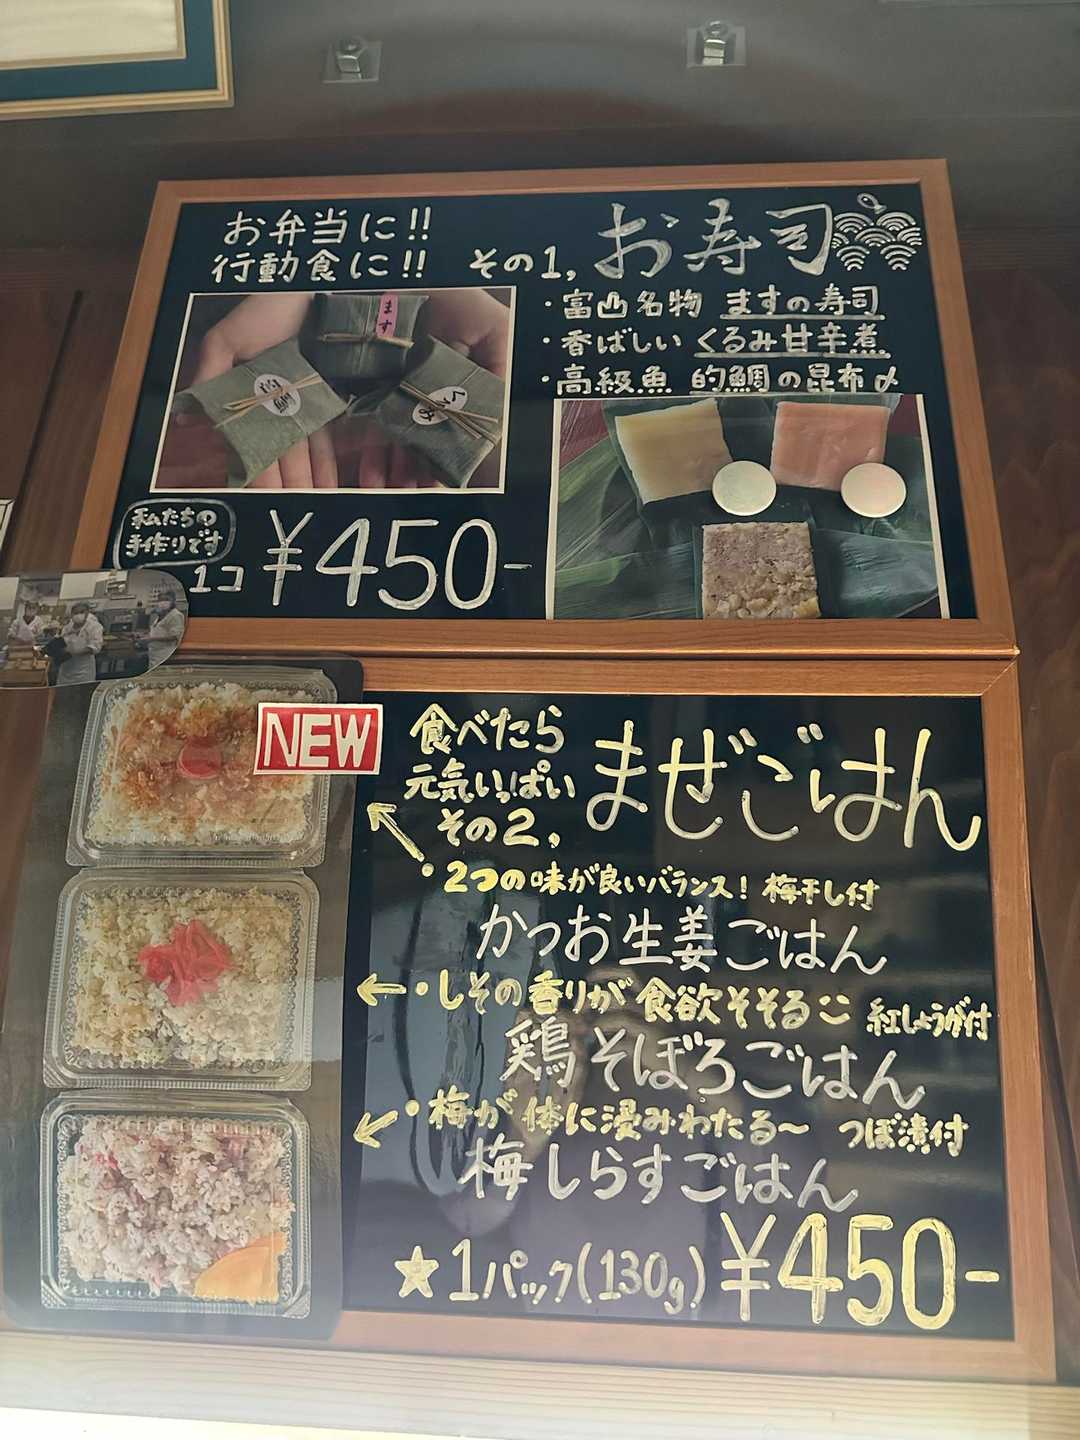 お弁当に!!
行動食に!!
その1, お寿司
・富山名物 ますの寿司
・香ばしい くるみ甘辛煮
・高級魚 的鯛の昆布〆
ます
的鯛
くるみ
私たちの
手作りです
1コ ¥450-
NEW
食べたら
元気いっぱい
その2,
まぜごはん
・2つの味が良いバランス! 梅干し付
かつお生姜ごはん
・しその香りが食欲そそる 紅しょうが付
鶏そぼろごはん
・梅が体に浸みわたる〜 つぼ漬付
梅しらすごはん
★1パック(130g) ¥450-